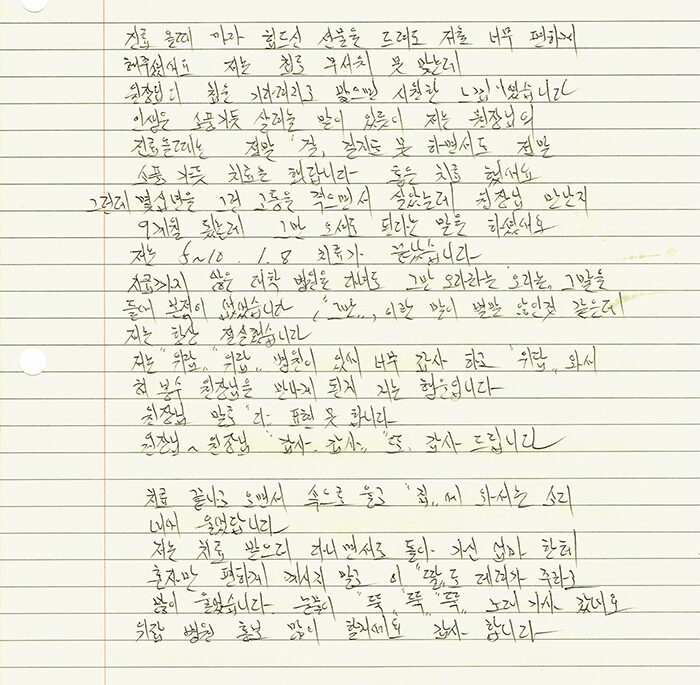 진료 올때 마다 힘드신 선물을 드려도 저흴 너무 편하게
해주셨서요 저는 침도 무서워 못 맞는데
원장님의 침은 기다려지고 맞으면 시원한 느낌이였습니다
인생은 소풍가듯 살려는 말이 있듯이 저는 원장님의
진료올때는 정말 걸, 걸지는 못 하면서도 정말
소풍 가듯 치료는 했답니다 좋은 치료 했서요
그런데 몇십년을 그런 고통을 격으면서 살았는데 원장님 만난지
9개월 됬는데 그만 오셔도 된다는 말을 하셨서요
저는 5~10. 1.8 치료가 끝났습니다
지금까지 많은 대학 병원을 다녀도 그만 오라라는 오라는, 그말을
들어 본적이 없었습니다 "그만", 이란 말이 별말 않인것 같은데
저는 항상 절실했습니다
저는 "위담" "위담" 병원이 있써 너무 감사 하고 "위담" 와서
허 봉수 원장님을 만나게 된게 저는 행운입니다
원장님 말로 "다" 표현 못 합니다
원장님~ 원장님 "감사. 감사" "또. 감사 드립니다
치료 끝나고 오면서 속으로 울고 "집"에 와서는 소리
내어 울었답니다
저는 치료 받으러 다니면서도 돌아 가신 엄마 한테
혼자만 편하게 계시지 말고 이 "딸"도 데려가 주라고
많이 울었습니다. 눈물이 "뚝" "뚝" "뚝" 노래 가사 갔네요
위담 병원 홍보 많이 할거에요 감사 합니다